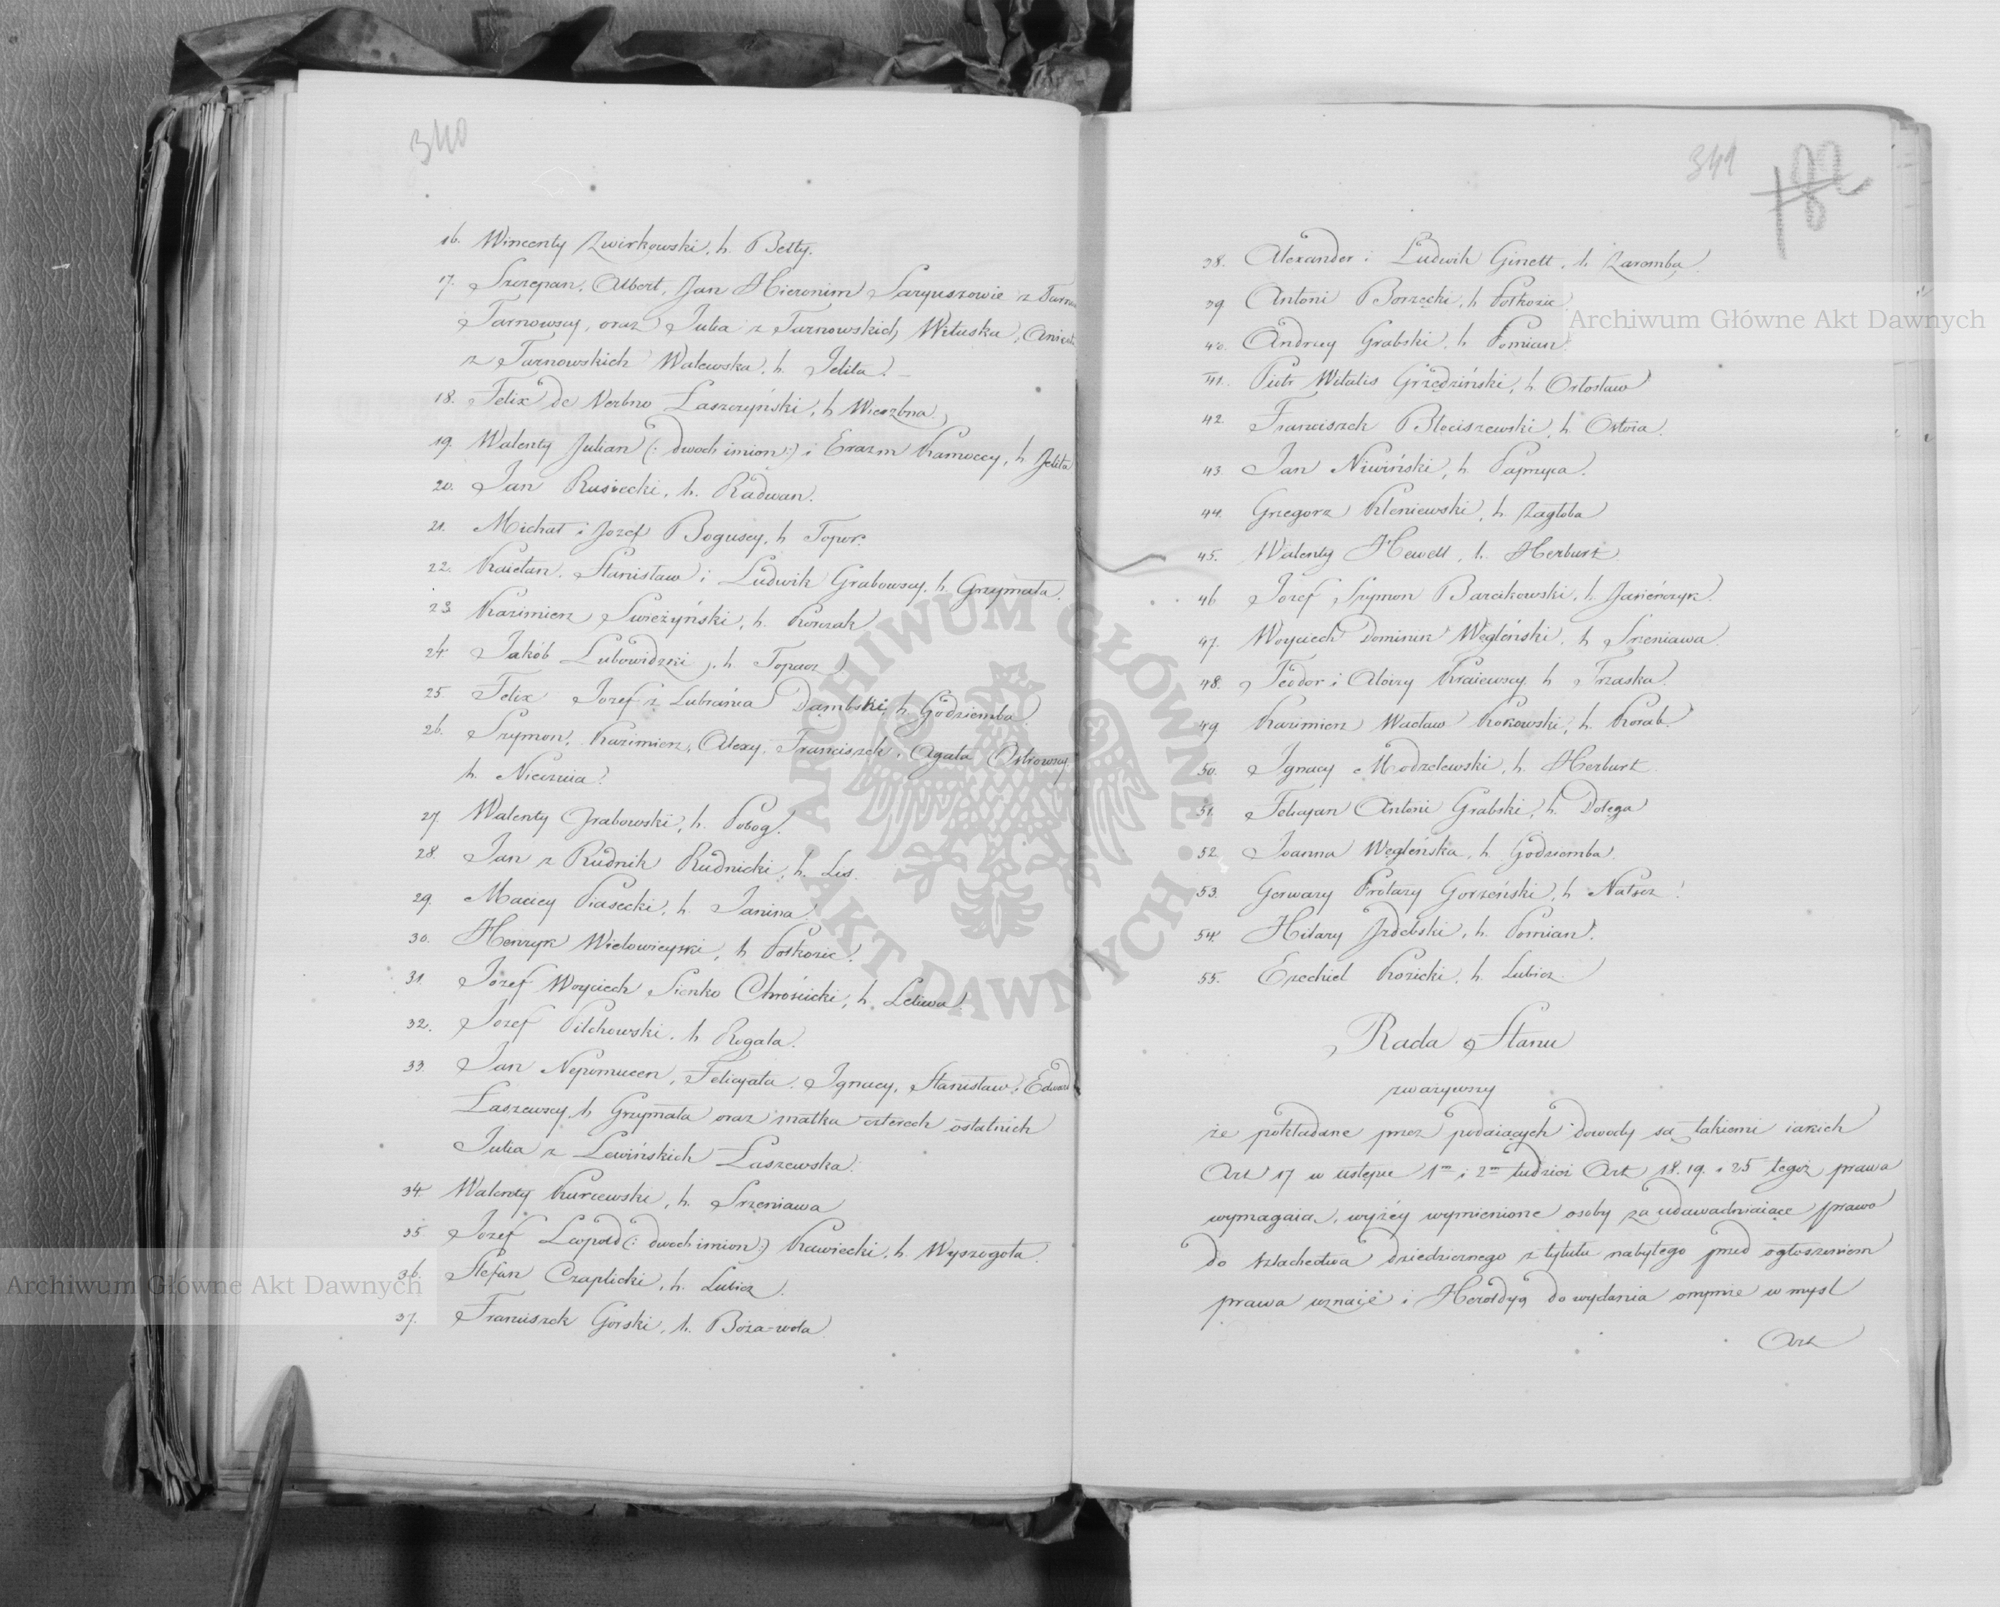 340
16. Wincenty Zwirkowski, h. Bełty.
17. Szczepan, Albert, Jan Hieronim Saryuszowie z
Tarnowscy, oraz Julia z Tarnowskich Wituska,
z Tarnowskich Walewska, h. Jelita.
18. Felix de Verbno Łaszczyński, h. Wierzbna
19. Walenty Julian (: dwoch imion :) i Erazm Kamoccy, h. Jelita
20. Jan Rusiecki, h. Radwan.
21. Michał i Jozef Boguscy, h. Topor.
22. Kaietan, Stanisław i Ludwik Grabowscy, h. Grzymała.
23. Kazimierz Swieżyński, h. Korczak
24. Jakób Lubowidzki, h. Topacz
25. Felix Jozef z Lubrania Dąmbski, h. Godziemba
26. Szymon, Kazimierz, Alexy, Franciszek, Agata Ostrowscy
h. Nieczuia.
27. Walenty Grabowski, h. Pobog.
28. Jan z Rudnik Rudnicki, h. Lis.
29. Maciey Piasecki, h. Janina.
30. Henryk Wielowieyski, h. Półkozic.
31. Jozef Woyciech Sienko Chrościcki, h. Leliwa.
32. Jozef Pilchowski, h. Rogala.
33. Jan Nepomucen, Felicyata, Ignacy, Stanisław, Edward
Łaszewscy, h. Grzymała oraz matka czterech ostatnich
Julia z Lewińskich Łaszewska.
34. Walenty Kurcewski, h. Szreniawa
35. Jozef Leopold (: dwoch imion :) Kawiecki, h. Wyszogota.
36. Stefan Czaplicki, h. Lubicz.
37. Franciszek Górski, h. Boża-wola.
341
38. Alexander i Ludwik Ginett, h. Zaromba
39. Antoni Borzęcki, h. Półkozic
40. Andrzey Grabski, h. Pomian
41. Piotr Witalis Grzędziński, h. Ostosław
42. Franciszek Błociszewski, h. Ostoia.
43. Jan Niwiński, h. Paprzyca.
44. Grzegorz Kleniewski, h. Zagłoba
45. Walenty Hewell, h. Herburt
46. Józef Szymon Barcikowski, h. Jasieńczyk.
47. Woyciech Dominik Węgleński, h. Srzeniawa.
48. Teodor i Aloizy Kraiewscy, h. Trzaska.
49. Kazimierz Wacław Kokowski, h. Korab.
50. Ignacy Modzelewski, h. Herburt.
51. Felicyan Antoni Grabski, h. Dołęga
52. Joanna Węgleńska, h. Godziemba.
53. Gerwazy Protazy Gorzeński, h. Nałęcz.
54. Hilary Jzdebski, h. Pomian.
55. Ezechiel Kozicki, h. Lubicz.
Rada Stanu
zważywszy
że pokładane przez podaiących dowody są takiemi iakich
Art 17 w ustępie 1m i 2m tudzież Art 18. 19. i 25 tegoż prawa
wymagaią, wyżey wymienione osoby za udowadniaiące prawo
do szlachectwa dziedzicznego z tytułu nabytego przed ogłoszeniem
prawa uznaie i Heroldyą do wydania onymże w mysl
Art
Archiwum Główne Akt Dawnych
Archiwum Główne Akt Dawnych
ARCHIWUM GŁÓWNE · AKT DAWNYCH ·